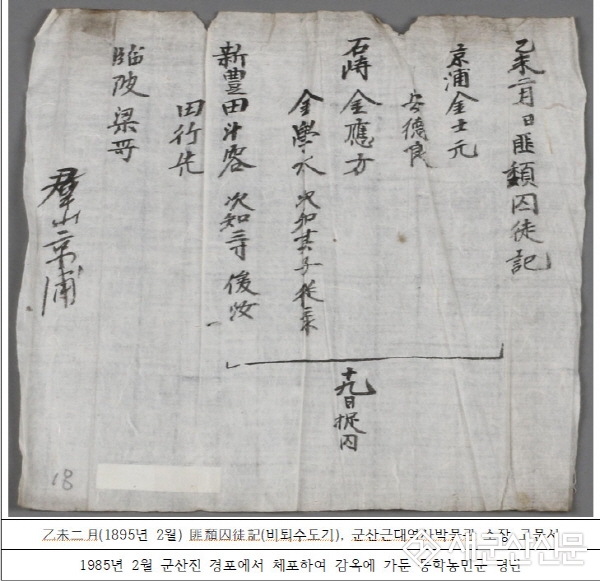 乙未二月日匪類囚徒記
京浦金士元
安德良
石峙金應方
金學水 次知其子從來
新豊田斗容 次知寺俊汝
田行先
臨陂梁哥
群山京浦
十九日捉囚
18
乙未二月(1895년 2월) 匪頹囚徒記(비퇴수도기), 군산근대역사박물관 소장 고문서
1985년 2월 군산진 경포에서 체포하여 감옥에 가둔 동학농민군 명단
새군산신문